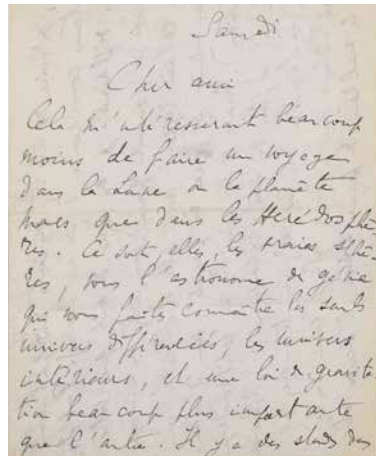 Samedi
Cher ami
Cela m'intéresserait beaucoup
moins de faire un voyage
dans la Lune ou la planète
Mars que dans les Hérédosphè-
res. Ce sont, elles, les vraies sphè-
res, vous l'astronome de génie
qui nous faites connaître les seuls
univers différenciés, les univers
intérieurs, et une loi de gravita-
tion beaucoup plus importante
que l'autre. Il y a des stades dans